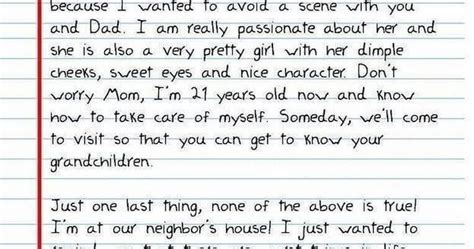 because I wanted to avoid a scene with you
and Dad. I am really passionate about her and
she is also a very pretty girl with her dimple
cheeks, sweet eyes and nice character. Don't
worry Mom, I'm 21 years old now and know
how to take care of myself. Someday, we'll come
to visit so that you can get to know your
grandchildren.
Just one last thing, none of the above is true!
I'm at our neighbor's house! I just wanted to